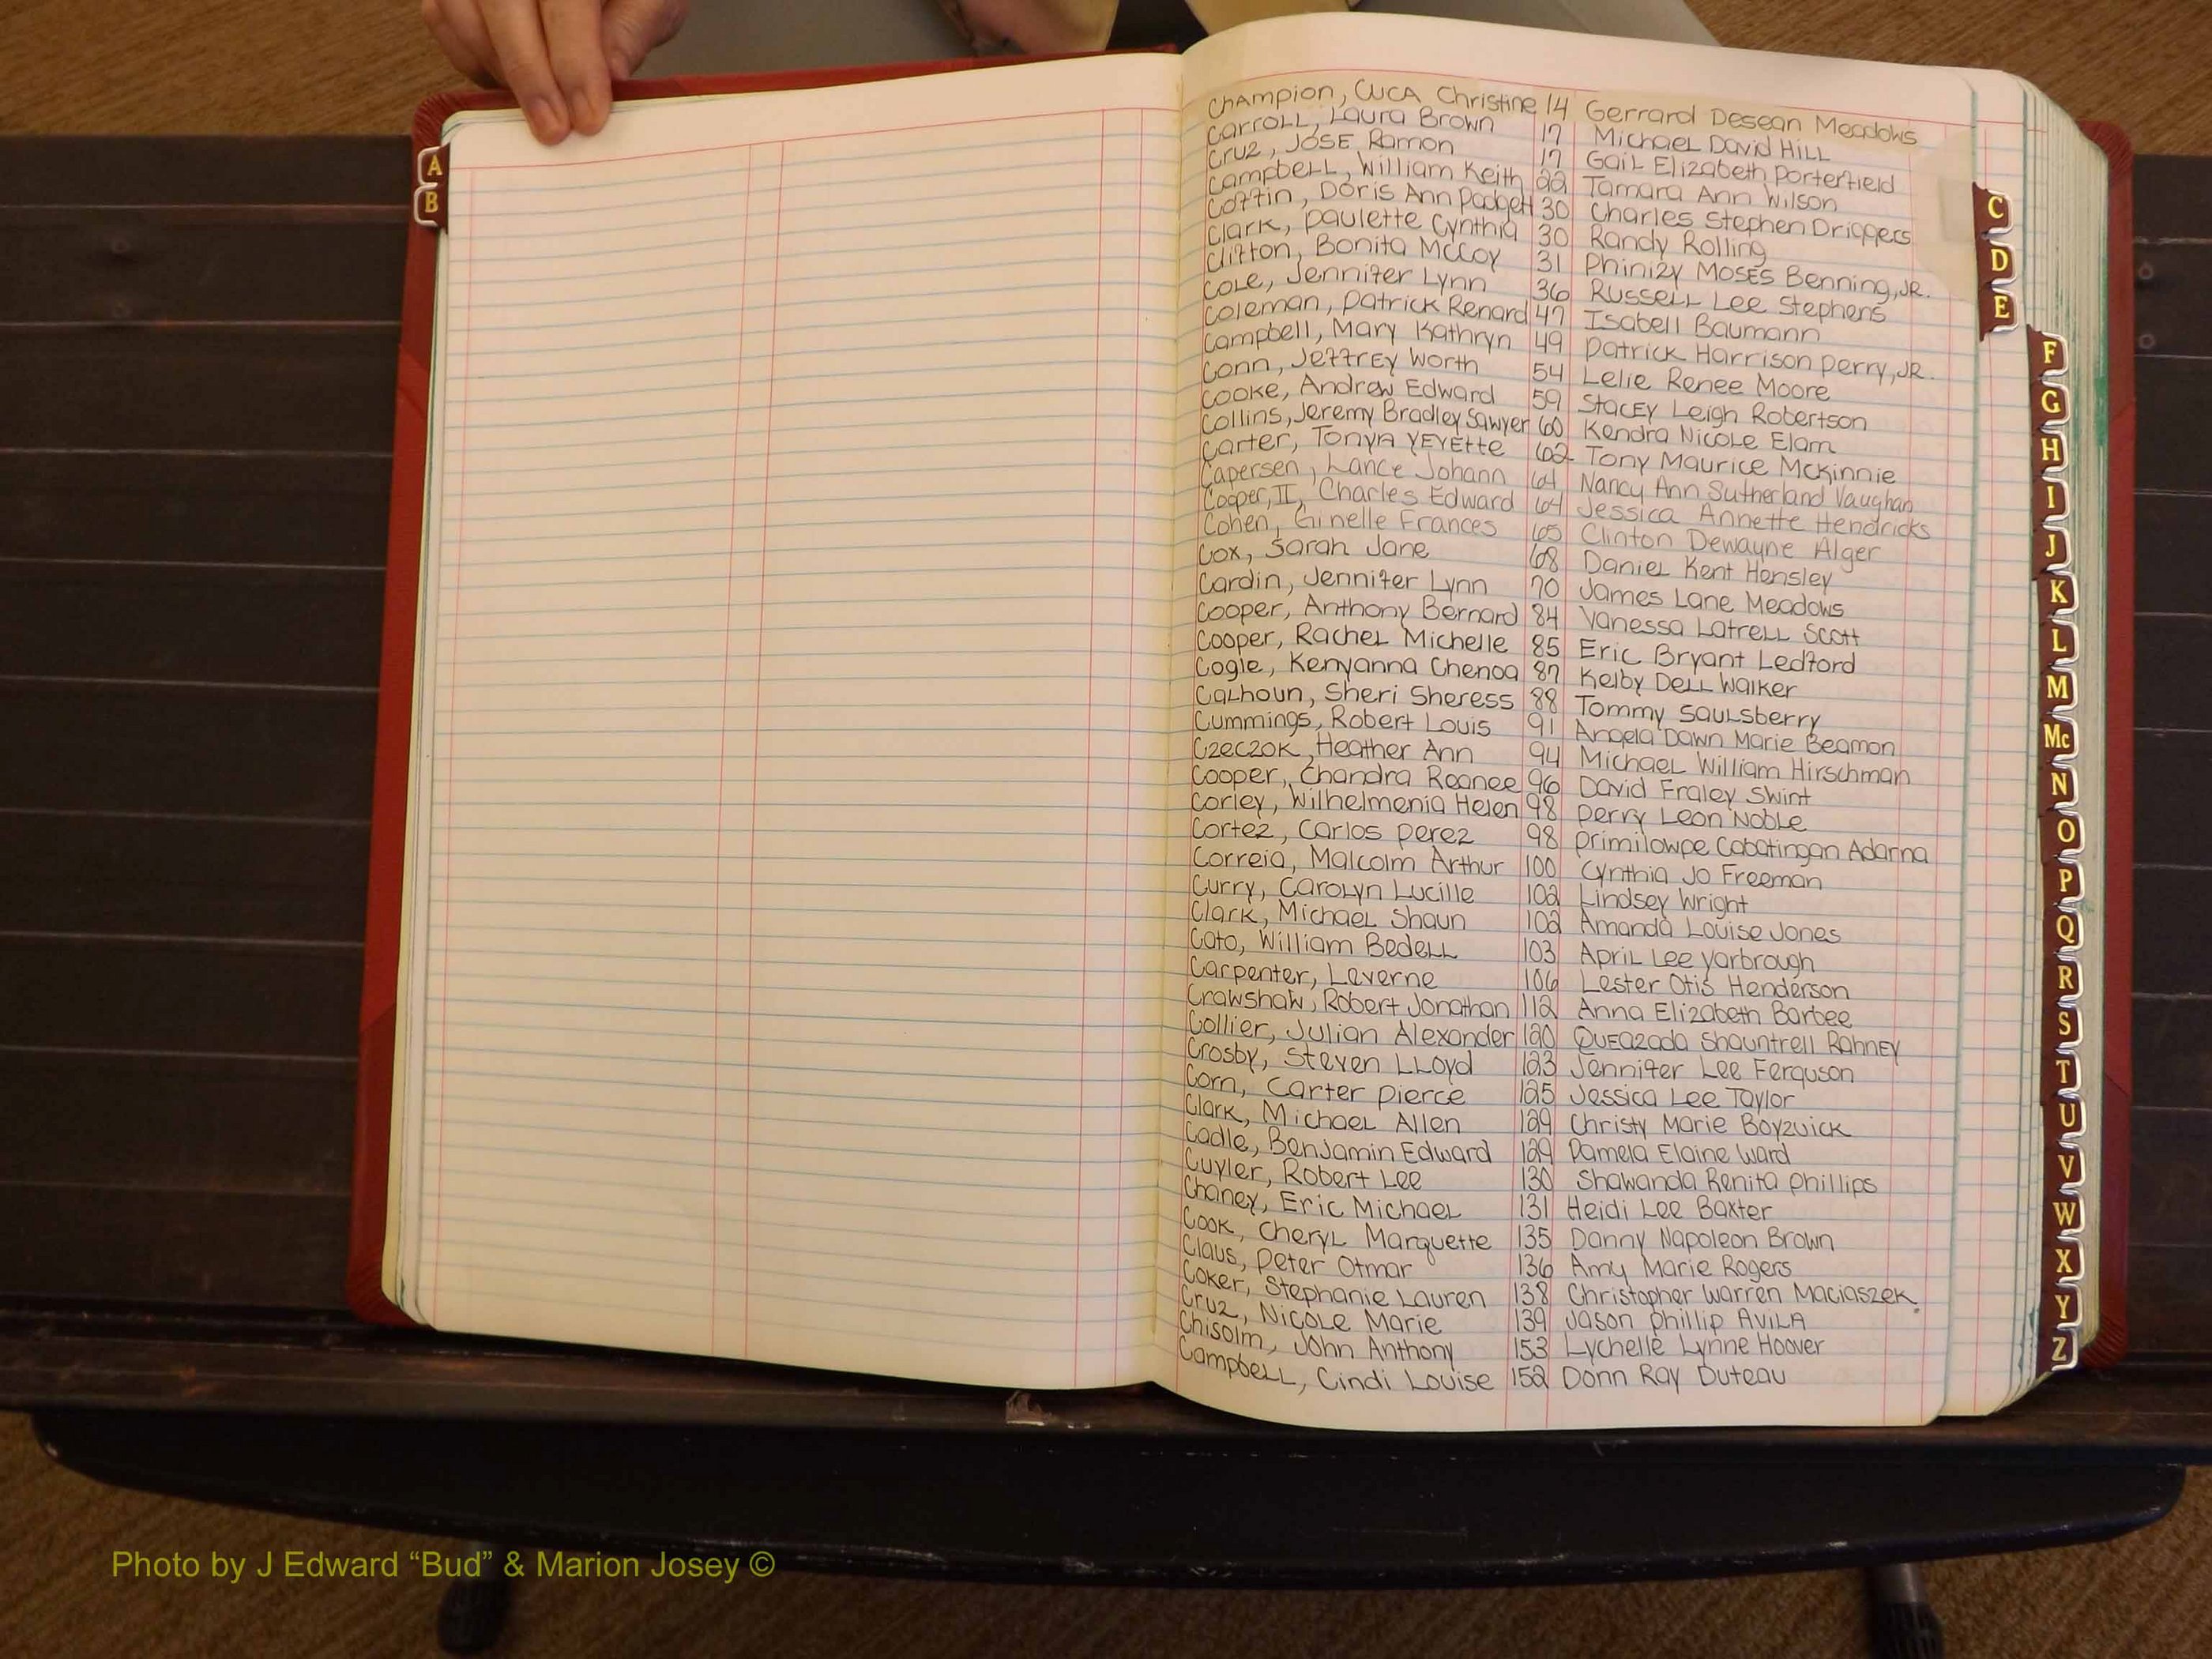 A
B
Champion, CUCA Christine 14 Gerrard Desean Meadows
Carroll, Laura Brown 17 Michael David Hill
Cruz, Jose Ramon 17 Gail Elizabeth Porterfield
Campbell, William Keith 22 Tamara Ann Wilson
Coffin, Doris Ann Padgett 30 Charles Stephen Driggers
Clark, Paulette Cynthia 30 Randy Rolling
Clifton, Bonita McCoy 31 Phinizy Moses Benning, JR.
Cole, Jennifer Lynn 36 Russell Lee Stephens
Coleman, Patrick Renard 47 Isabell Baumann
Campbell, Mary Kathryn 49 Patrick Harrison Perry, JR.
Conn, Jeffrey Worth 54 Lelie Renee Moore
Cooke, Andrew Edward 59 Stacey Leigh Robertson
Collins, Jeremy Bradley Sawyer 60 Kendra Nicole Elam
Carter, Tonya Yevette 62 Tony Maurice McKinnie
Capersen, Lance Johann 64 Nancy Ann Sutherland Vaughan
Cooper, II, Charles Edward 64 Jessica Annette Hendricks
Cohen, Ginelle Frances 65 Clinton Dewayne Alger
Cox, Sarah Jane 68 Daniel Kent Hensley
Cardin, Jennifer Lynn 70 James Lane Meadows
Cooper, Anthony Bernard 84 Vanessa Latrell Scott
Cooper, Rachel Michelle 85 Eric Bryant Ledford
Cogle, Kenyanna Chenoa 87 Kelby Dell Walker
Calhoun, Sheri Sheress 88 Tommy Saulsberry
Cummings, Robert Louis 91 Angela Dawn Marie Beamon
Czeczok, Heather Ann 94 Michael William Hirschman
Cooper, Chandra Reanee 96 David Fraley Swint
Corley, Wilhelmenia Helen 98 Perry Leon Noble
Cortez, Carlos Perez 98 Primilowpe Cabatingan Adarna
Correia, Malcolm Arthur 100 Cynthia Jo Freeman
Curry, Carolyn Lucille 102 Lindsey Wright
Clark, Michael Shaun 102 Amanda Louise Jones
Cato, William Bedell 103 April Lee Yarbrough
Carpenter, Laverne 106 Lester Otis Henderson
Crawshaw, Robert Jonathan 112 Anna Elizabeth Barbee
Collier, Julian Alexander 120 Queazada Shauntrell Rahney
Crosby, Steven Lloyd 123 Jennifer Lee Ferguson
Corn, Carter Pierce 125 Jessica Lee Taylor
Clark, Michael Allen 129 Christy Marie Boyzuick
Cadle, Benjamin Edward 129 Pamela Elaine Ward
Cuyler, Robert Lee 130 Shawanda Renita Phillips
Chaney, Eric Michael 131 Heidi Lee Baxter
Cook, Cheryl Marquette 135 Danny Napoleon Brown
Claus, Peter Otmar 136 Amy Marie Rogers
Coker, Stephanie Lauren 138 Christopher Warren Maciaszek.
Cruz, Nicole Marie 139 Jason Phillip Avila
Chisolm, John Anthony 153 Lychelle Lynne Hoover
Campbell, Cindi Louise 152 Donn Ray Duteau
C
D
E
F
G
H
I
J
K
L
M
Mc
N
O
P
Q
R
S
T
U
V
W
X
Y
Z
Photo by J Edward “Bud” & Marion Josey ©